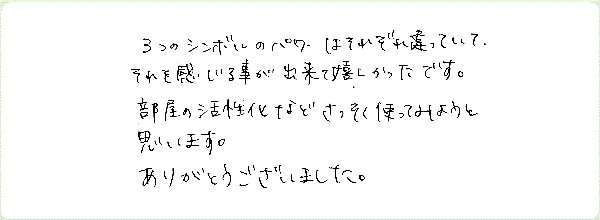 3つのシンボルのパワーはそれぞれ違っていて、
それを感じる事が出来て嬉しかったです。
部屋の活性化などさっそく使ってみようと
思います。
ありがとうございました。